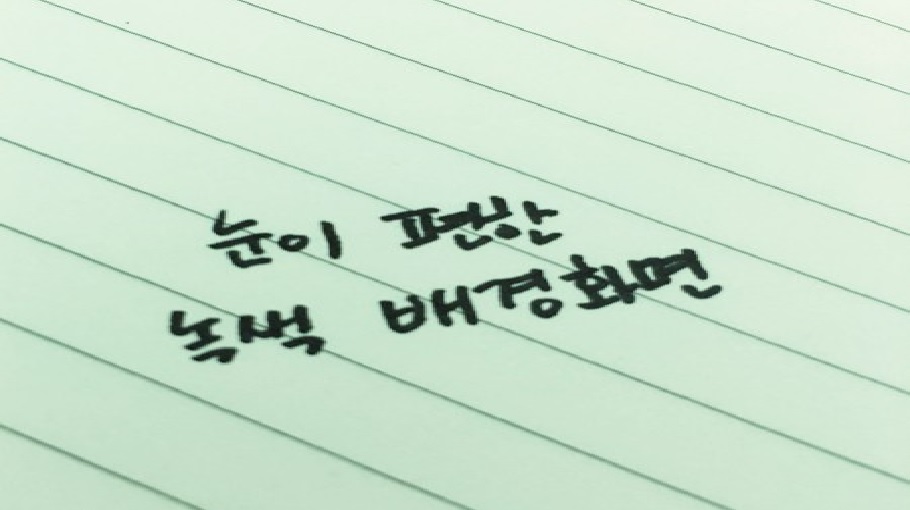 눈이 편한
녹색 배경화면